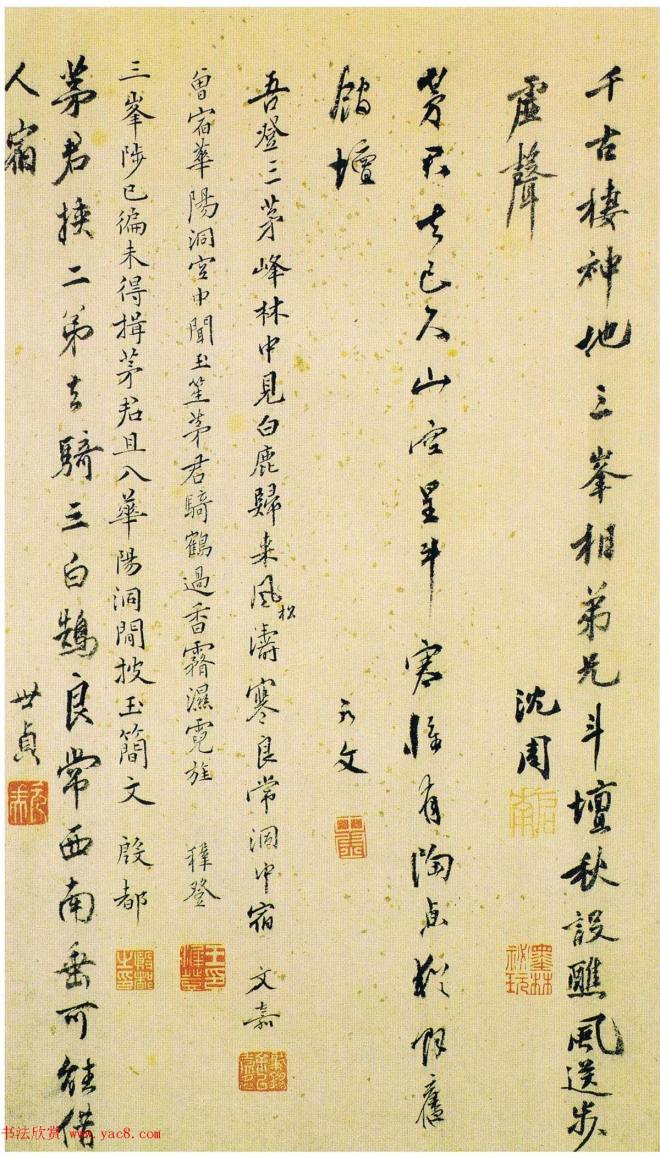 千古棲神地三峯相弟兄斗壇秋設醮風送步
虛聲
沈周
茅君去已久山空星斗寒唯有陶貞
舊
館壇
元文
吾登三茅峰林中見白鹿歸来風濤寒良常洞中宿 文嘉
松
曾宿華陽洞宮中聞玉笙茅君騎鶴過香霧濕霓旌 穉登
三峯陟已徧未得揖茅君且入華陽洞閒披玉簡文 殷都
茅君挾二弟去騎三白鵠良常西南垂可能借
人宿
世貞
墨林祕玩
殷都之印
书法欣赏 www.yac8.com